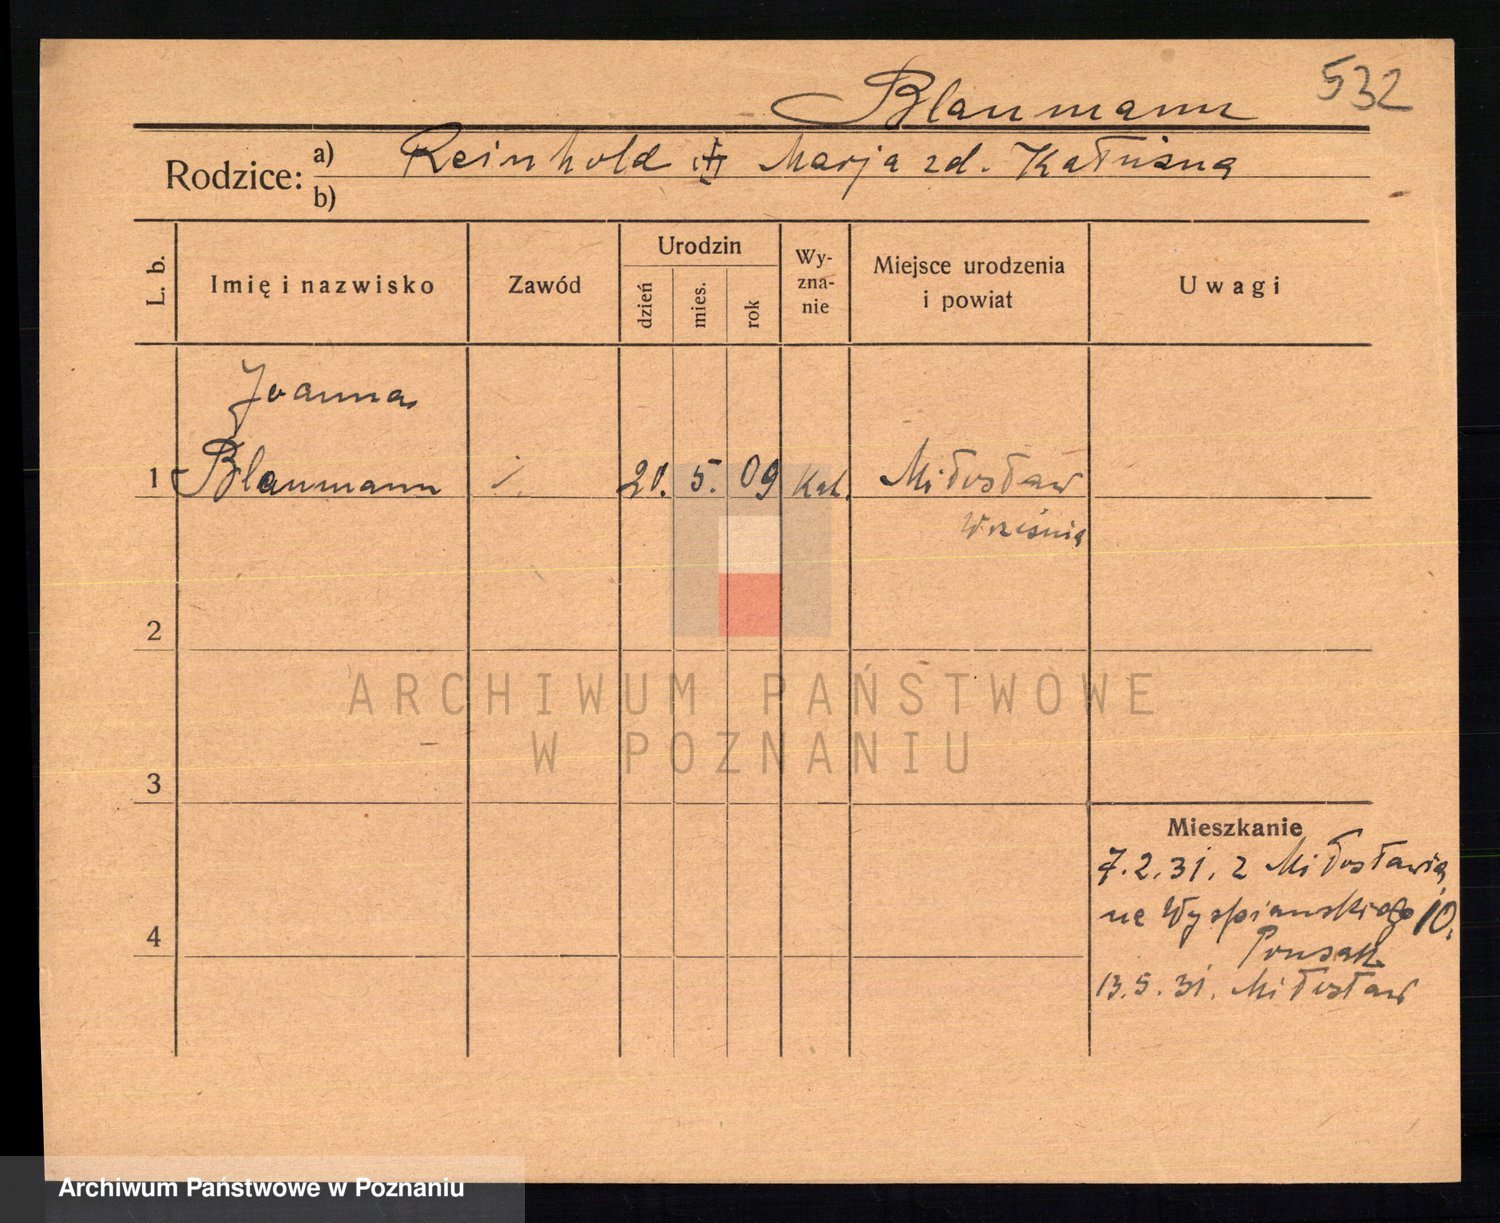 532
Blaumann
Rodzice: a) Reinhold Marja zd. Kałużna
b)
L. b.
Imię i nazwisko
Zawód
Urodzin
dzień
mies.
rok
Wy-
zna-
nie
Miejsce urodzenia
i powiat
Uwagi
Joanna
1 Blaumann 21. 5. 09 Kat. Miłosław
Września
2
ARCHIWUM PAŃSTWOWE
W POZNANIU
3
Mieszkanie
7.2.31. z Miłosławia
na Wyspiańskiego 10.
4
13.5.31. Miłosław
Archiwum Państwowe w Poznaniu